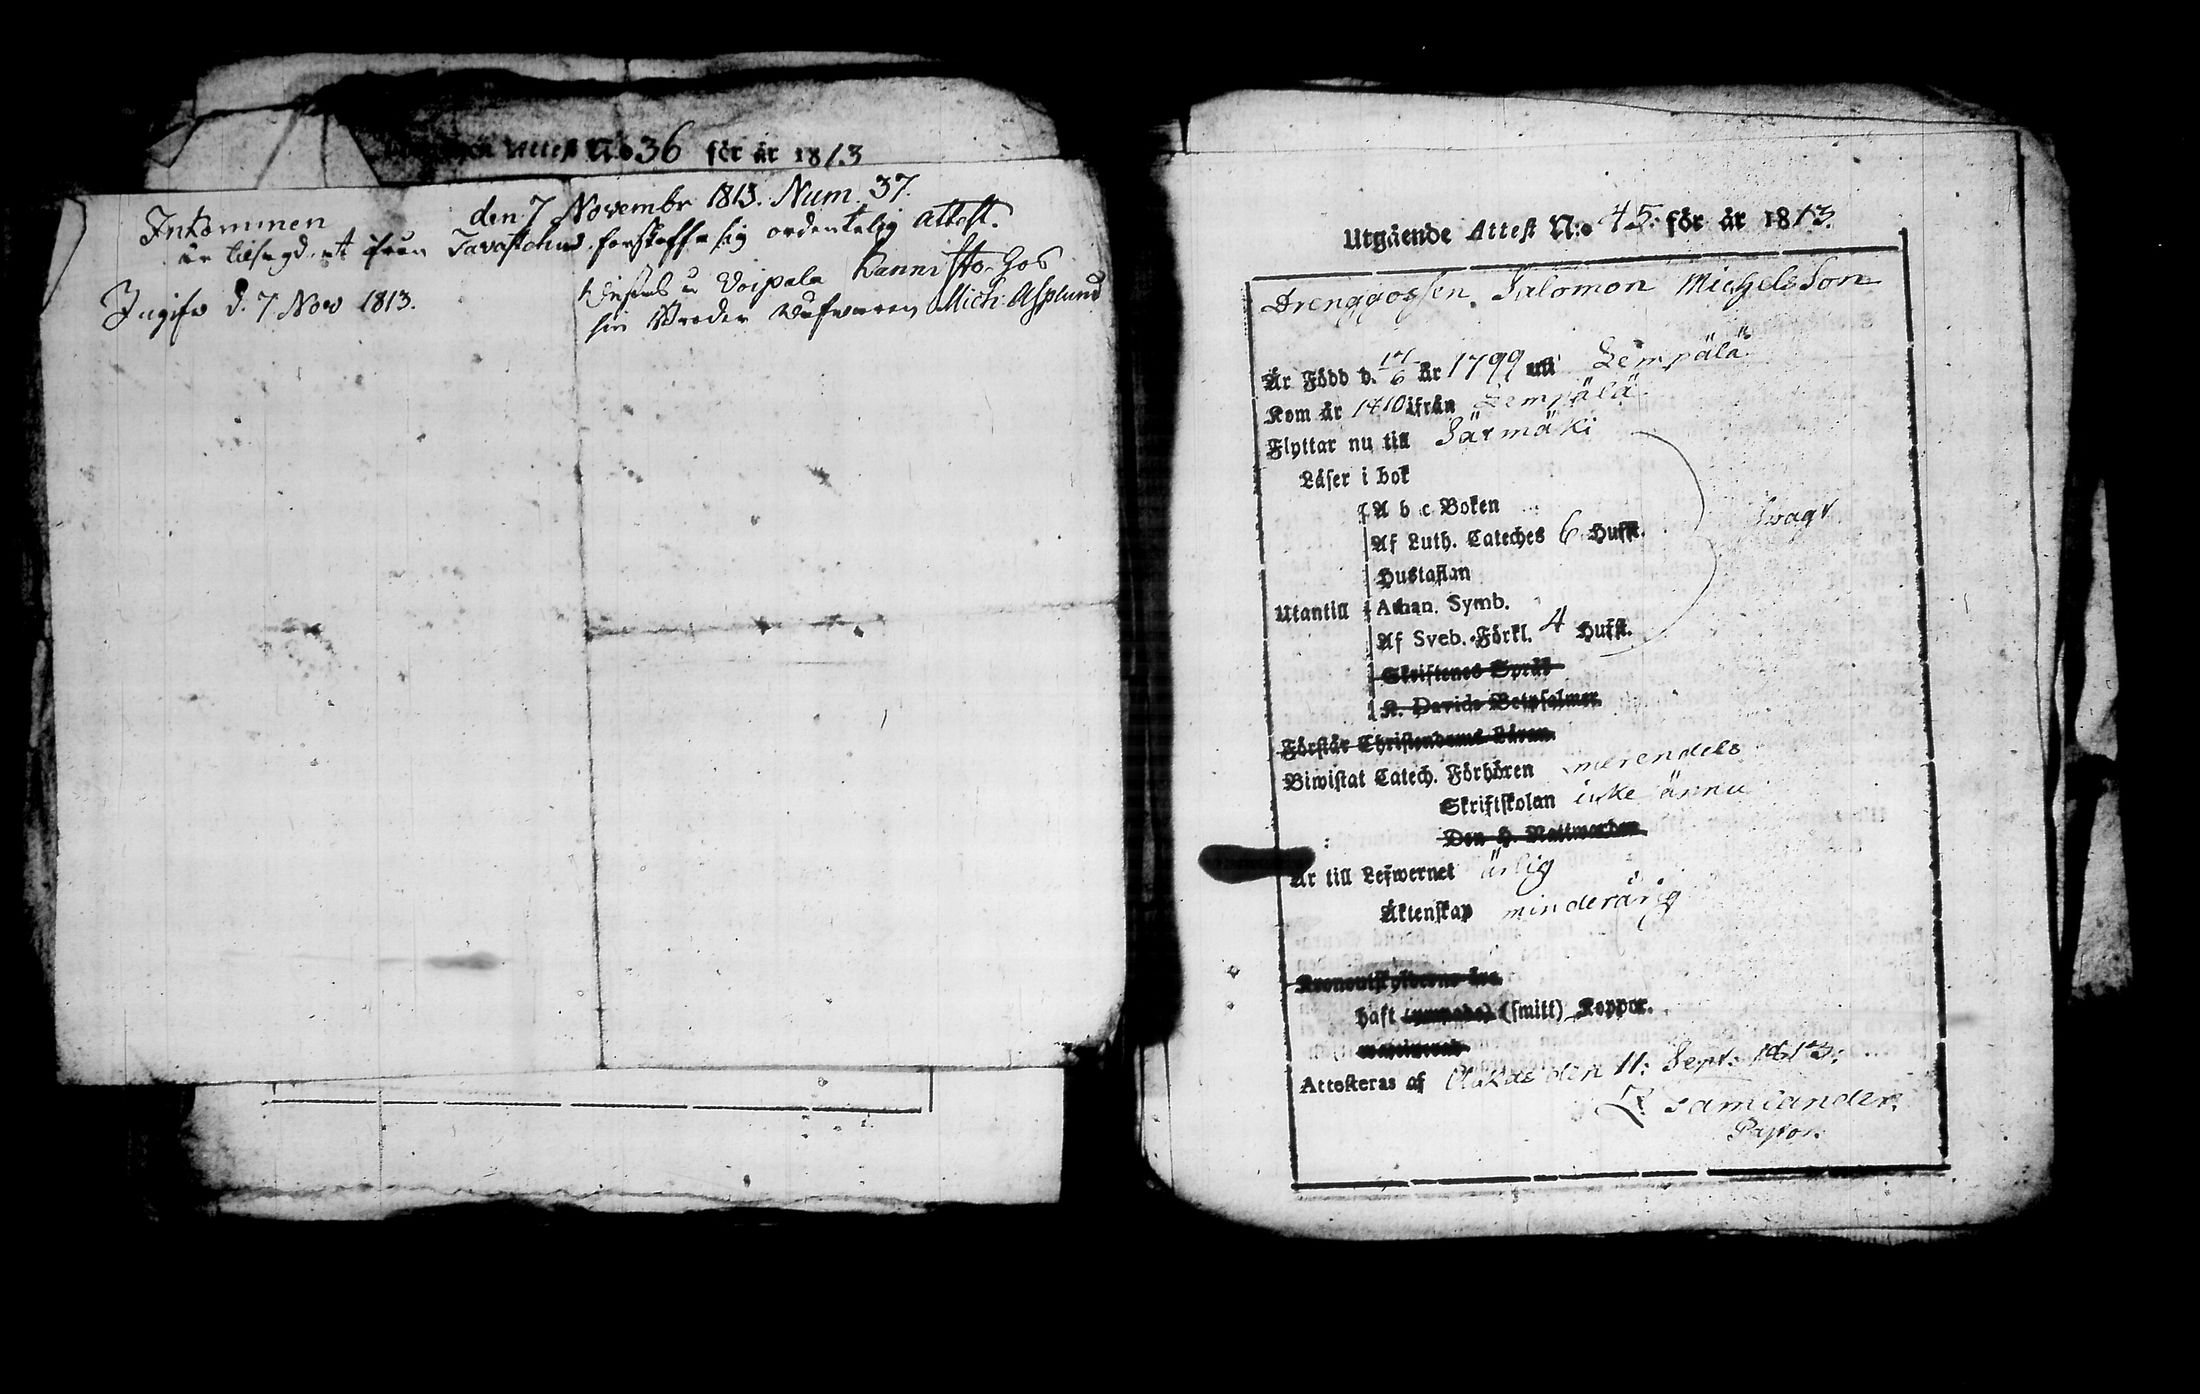 Attest N:o 36 för år 1813
Inkommen den 7 Novembr 1813. Num. 37.
är tilsagd att ifrån Tavastehus forskaffa sig ordentelig attest.
Ingifv d. 7 Nov 1813.
Voipala Kannisto hos
sin Broder Mich: Asplund
Utgående Attest N:o 45. för år 1813.
Drenggossen Salomon Michelsson
Är Född d. 17/6 år 1799 uti Lempälä
Kom år 1810 ifrån Lempälä
Flyttar nu till Särmäki
Läser i bok
A b c Boken
Af Luth. Cateches 6 Hufst. swagt
Hustaflan
Utantill Athan. Symb.
Af Sveb. Förkl. 4 Hufst.
Skriftenes Språk
K. Davids Botpsalmer
Förstår Christendoms Läran
Biwistat Catech. Förhören merendels
Skriftskolan icke ännu
Den H. Nattwarden
Är till Lefwernet ärlig
Äktenskap minderårig
haft (smitt) Koppor.
Attesteras af Akkas den 11: Sept: 1813:
Pastor.